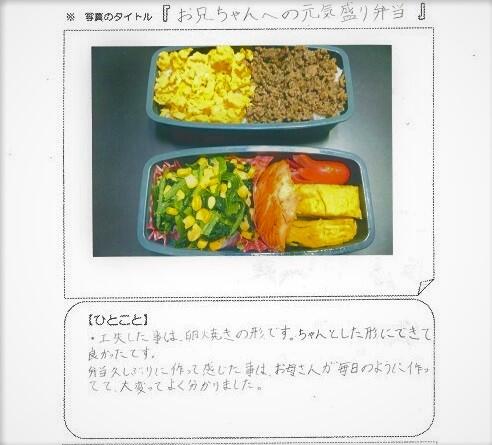 ※ 写真のタイトル『お兄ちゃんへの元気盛り弁当』
【ひとこと】
・工夫した事は、卵焼きの形です。ちゃんとした形にできて
良かったです。
弁当久しぶりに作って感じた事は、お母さんが毎日のように作っ
てて、大変ってよく分かりました。